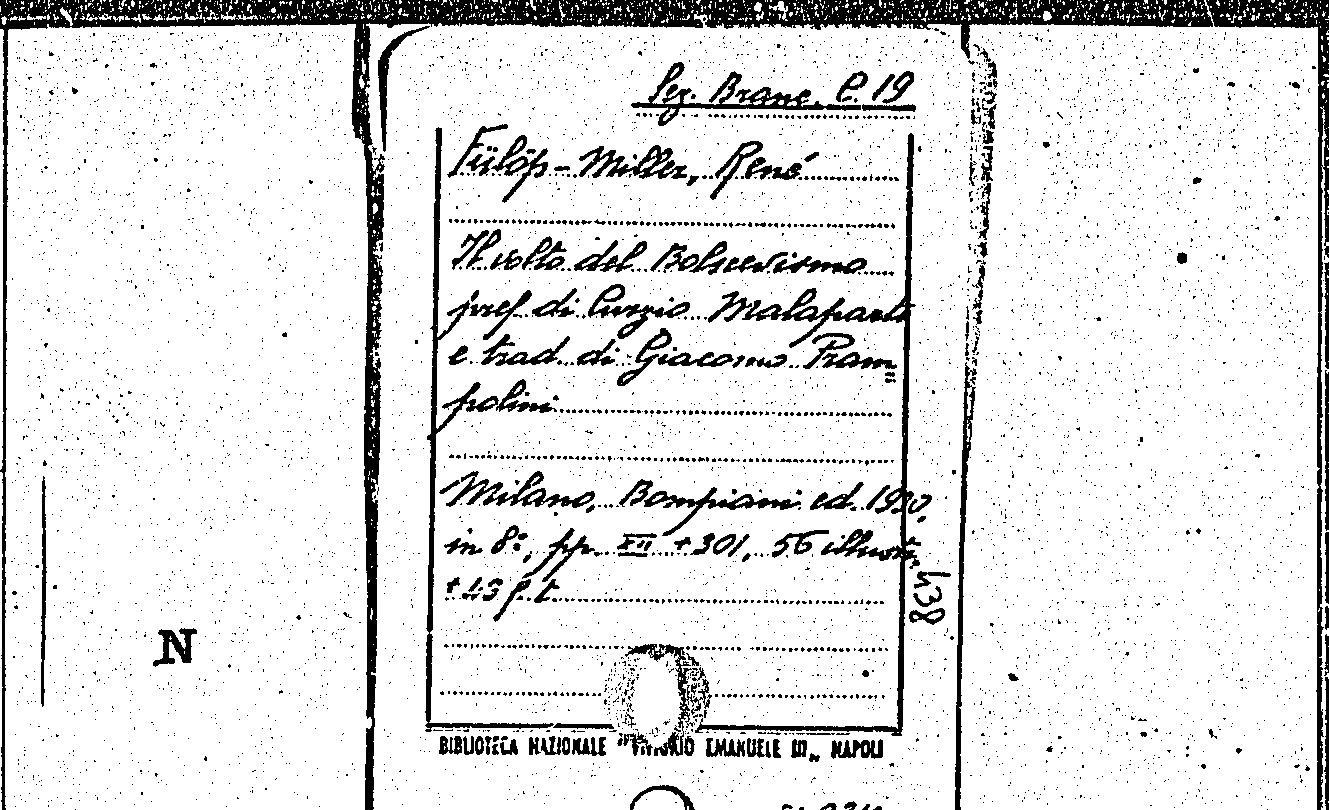 Sez. Branc. C. 19
Fülöp-Miller, René
Il volto del Bolscevismo
pref di Curzio Malaparte
e trad. di Giacomo Pram=
polini
Milano, Bompiani ed. 1930,
in 8º, pp. XII + 301, 56 illustr.
+ 43 f. t.
438
N
BIBLIOTECA NAZIONALE "VITTORIO EMANUELE III„ NAPOLI